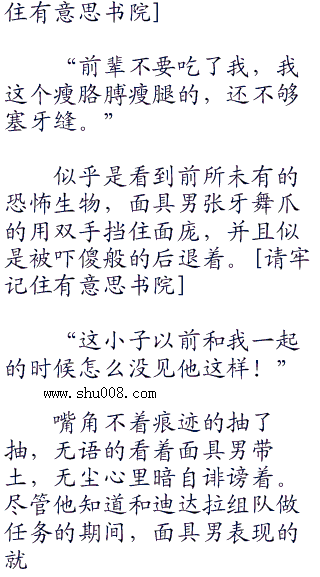 住有意思书院]
“前辈不要吃了我，我
这个瘦胳膊瘦腿的，还不够
塞牙缝。”
似乎是看到前所未有的
恐怖生物，面具男张牙舞爪
的用双手挡住面庞，并且似
是被吓傻般的后退着。[请牢
记住有意思书院]
“这小子以前和我一起
的时候怎么没见他这样！”
www.shu008.com
嘴角不着痕迹的抽了
抽，无语的看着面具男带
土，无尘心里暗自诽谤着。
尽管他知道和迪达拉组队做
任务的期间，面具男表现的
就